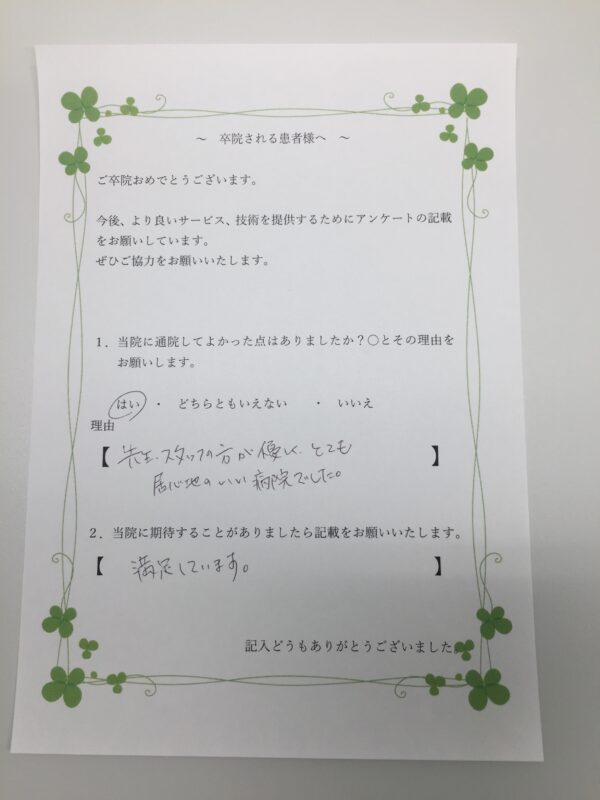 ～　卒院される患者様へ　～
ご卒院おめでとうございます。
今後、より良いサービス、技術を提供するためにアンケートの記載
をお願いしています。
ぜひご協力をお願いいたします。
1．当院に通院してよかった点はありましたか？〇とその理由を
お願いします。
はい　・　どちらともいえない　・　いいえ
理由
【 先生、スタッフの方が優しく、とても
居心地のいい病院でした。 】
2．当院に期待することがありましたら記載をお願いいたします。
【 満足しています。 】
記入どうもありがとうございました。